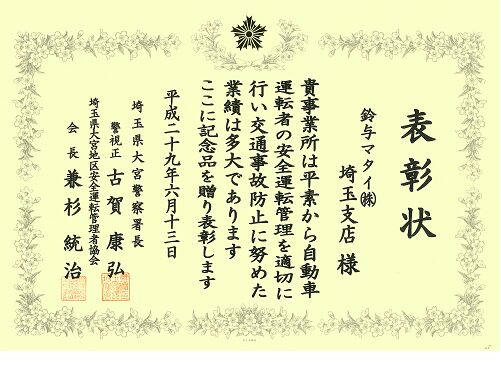 表彰状
鈴与マタイ㈱
埼玉支店 様
貴事業所は平素から自動車
運転者の安全運転管理を適切に
行い交通事故防止に努めた
業績は多大であります
ここに記念品を贈り表彰します
平成二十九年六月十三日
埼玉県大宮警察署長
警視正 古賀 康弘
埼玉県大宮地区安全運転管理者協会
会長 兼杉 統治